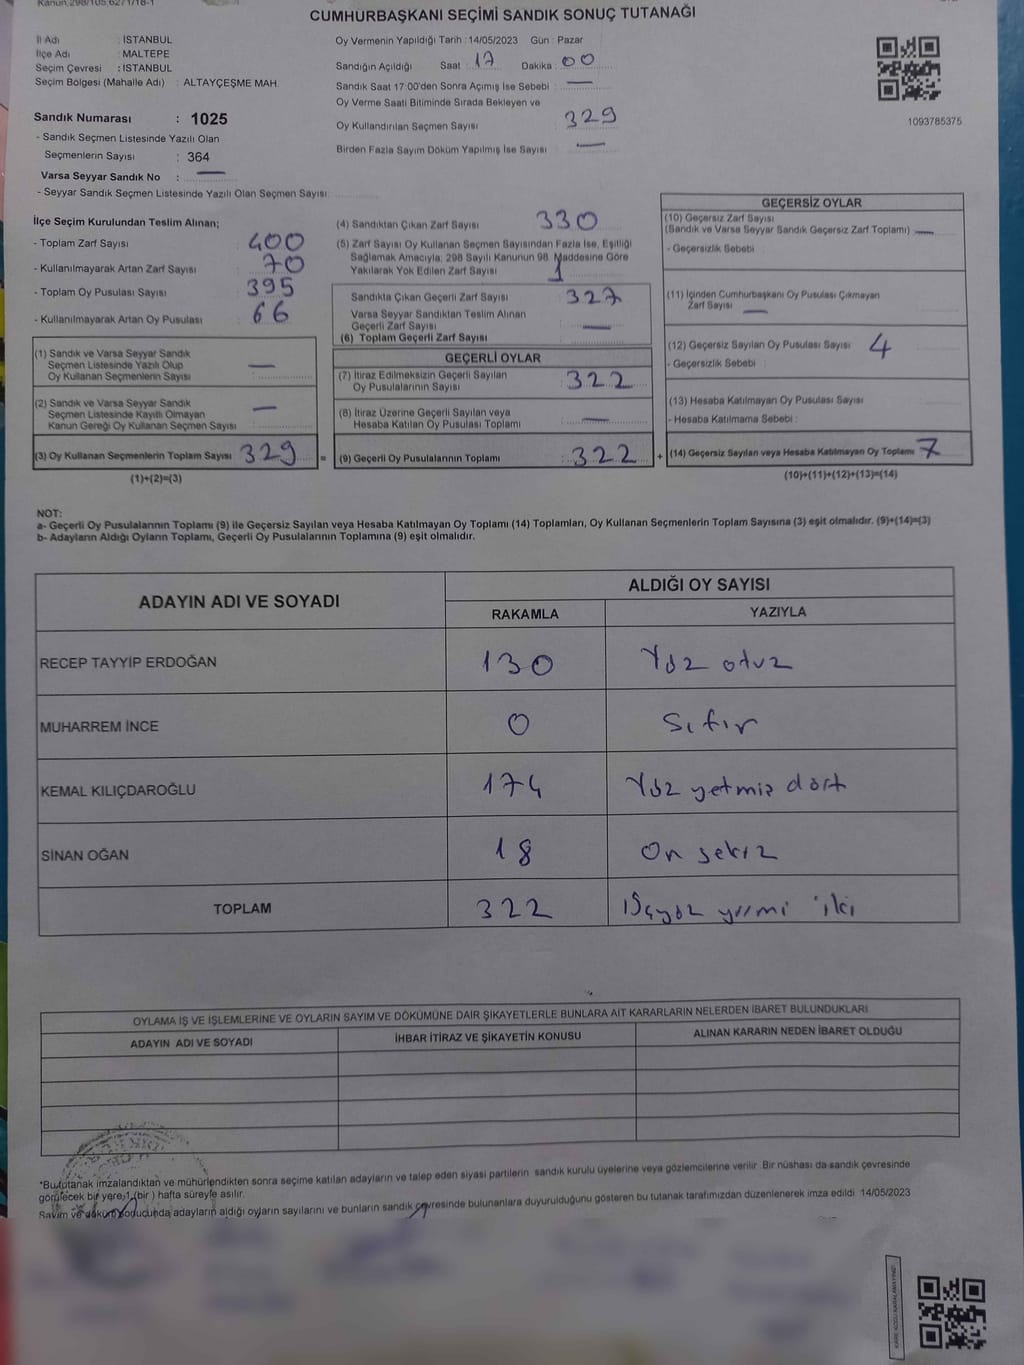 CUMHURBAŞKANI SEÇİMİ SANDIK SONUÇ TUTANAĞI
İl Adı : İSTANBUL
İlçe Adı : MALTEPE
Seçim Çevresi : İSTANBUL
Seçim Bölgesi (Mahalle Adı) : ALTAYÇEŞME MAH.
Sandık Numarası : 1025
- Sandık Seçmen Listesinde Yazılı Olan
Seçmenlerin Sayısı : 364
Varsa Seyyar Sandık No : —
- Seyyar Sandık Seçmen Listesinde Yazılı Olan Seçmen Sayısı:
Oy Vermenin Yapıldığı Tarih : 14/05/2023 Gün : Pazar
Sandığın Açıldığı Saat : 17 Dakika : 00
Sandık Saat 17:00'den Sonra Açımış İse Sebebi : —
Oy Verme Saati Bitiminde Sırada Bekleyen ve
Oy Kullandırılan Seçmen Sayısı : 329
Birden Fazla Sayım Döküm Yapılmış İse Sayısı : —
1093785375
İlçe Seçim Kurulundan Teslim Alınan;
- Toplam Zarf Sayısı : 400
- Kullanılmayarak Artan Zarf Sayısı : 70
- Toplam Oy Pusulası Sayısı : 395
- Kullanılmayarak Artan Oy Pusulası : 66
(1) Sandık ve Varsa Seyyar Sandık
Seçmen Listesinde Yazılı Olup
Oy Kullanan Seçmenlerin Sayısı : —
(2) Sandık ve Varsa Seyyar Sandık
Seçmen Listesinde Kayıtlı Olmayan
Kanun Gereği Oy Kullanan Seçmen Sayısı : —
(3) Oy Kullanan Seçmenlerin Toplam Sayısı : 329
(1)+(2)=(3)
(4) Sandıktan Çıkan Zarf Sayısı : 330
(5) Zarf Sayısı Oy Kullanan Seçmen Sayısından Fazla İse, Eşitliği
Sağlamak Amacıyla; 298 Sayılı Kanunun 98. Maddesine Göre
Yakılarak Yok Edilen Zarf Sayısı : 1
Sandıkta Çıkan Geçerli Zarf Sayısı : 327
Varsa Seyyar Sandıktan Teslim Alınan
Geçerli Zarf Sayısı : —
(6) Toplam Geçerli Zarf Sayısı :
GEÇERLİ OYLAR
(7) İtiraz Edilmeksizin Geçerli Sayılan
Oy Pusulalarının Sayısı : 322
(8) İtiraz Üzerine Geçerli Sayılan veya
Hesaba Katılan Oy Pusulası Toplamı : —
= (9) Geçerli Oy Pusulalarının Toplamı : 322
GEÇERSİZ OYLAR
(10) Geçersiz Zarf Sayısı
(Sandık ve Varsa Seyyar Sandık Geçersiz Zarf Toplamı) —
- Geçersizlik Sebebi :
(11) İçinden Cumhurbaşkanı Oy Pusulası Çıkmayan
Zarf Sayısı : —
(12) Geçersiz Sayılan Oy Pusulası Sayısı : 4
- Geçersizlik Sebebi :
(13) Hesaba Katılmayan Oy Pusulası Sayısı
- Hesaba Katılmama Sebebi :
+ (14) Geçersiz Sayılan veya Hesaba Katılmayan Oy Toplamı 7
(10)+(11)+(12)+(13)=(14)
NOT:
a- Geçerli Oy Pusulalarının Toplamı (9) ile Geçersiz Sayılan veya Hesaba Katılmayan Oy Toplamı (14) Toplamları, Oy Kullanan Seçmenlerin Toplam Sayısına (3) eşit olmalıdır. (9)+(14)=(3)
b- Adayların Aldığı Oyların Toplamı, Geçerli Oy Pusulalarının Toplamına (9) eşit olmalıdır.
ADAYIN ADI VE SOYADI ALDIĞI OY SAYISI
RAKAMLA YAZIYLA
RECEP TAYYİP ERDOĞAN 130 Yüz otuz
MUHARREM İNCE 0 Sıfır
KEMAL KILIÇDAROĞLU 174 Yüz yetmiş dört
SİNAN OĞAN 18 On sekiz
TOPLAM 322 Üçyüz yirmi iki
OYLAMA İŞ VE İŞLEMLERİNE VE OYLARIN SAYIM VE DÖKÜMÜNE DAİR ŞİKAYETLERLE BUNLARA AİT KARARLARIN NELERDEN İBARET BULUNDUKLARI
ADAYIN ADI VE SOYADI İHBAR İTİRAZ VE ŞİKAYETİN KONUSU ALINAN KARARIN NEDEN İBARET OLDUĞU
*Bu tutanak imzalandıktan ve mühürlendikten sonra seçime katılan adayların ve talep eden siyasi partilerin sandık kurulu üyelerine veya gözlemcilerine verilir. Bir nüshası da sandık çevresinde
görülecek bir yere 1 (bir) hafta süreyle asılır.
Sayım ve döküm sonucunda adayların aldığı oyların sayılarını ve bunların sandık çevresinde bulunanlara duyurulduğunu gösteren bu tutanak tarafımızdan düzenlenerek imza edildi 14/05/2023